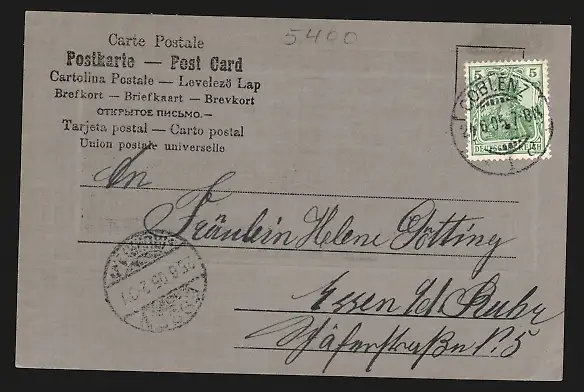 5400
Carte Postale
Postkarte — Post Card
Cartolina Postale — Levelező Lap
Brefkort — Briefkaart — Brevkort
ОТКРЫТОЕ ПИСЬМО.—
Tarjeta postal — Carto postal
Union postale universelle
5 5
DEUTSCHES REICH
COBLENZ
05.7-8N
An
Fräulein Helene Götting
Essen a/d Ruhr
Schäferstraße N. 5